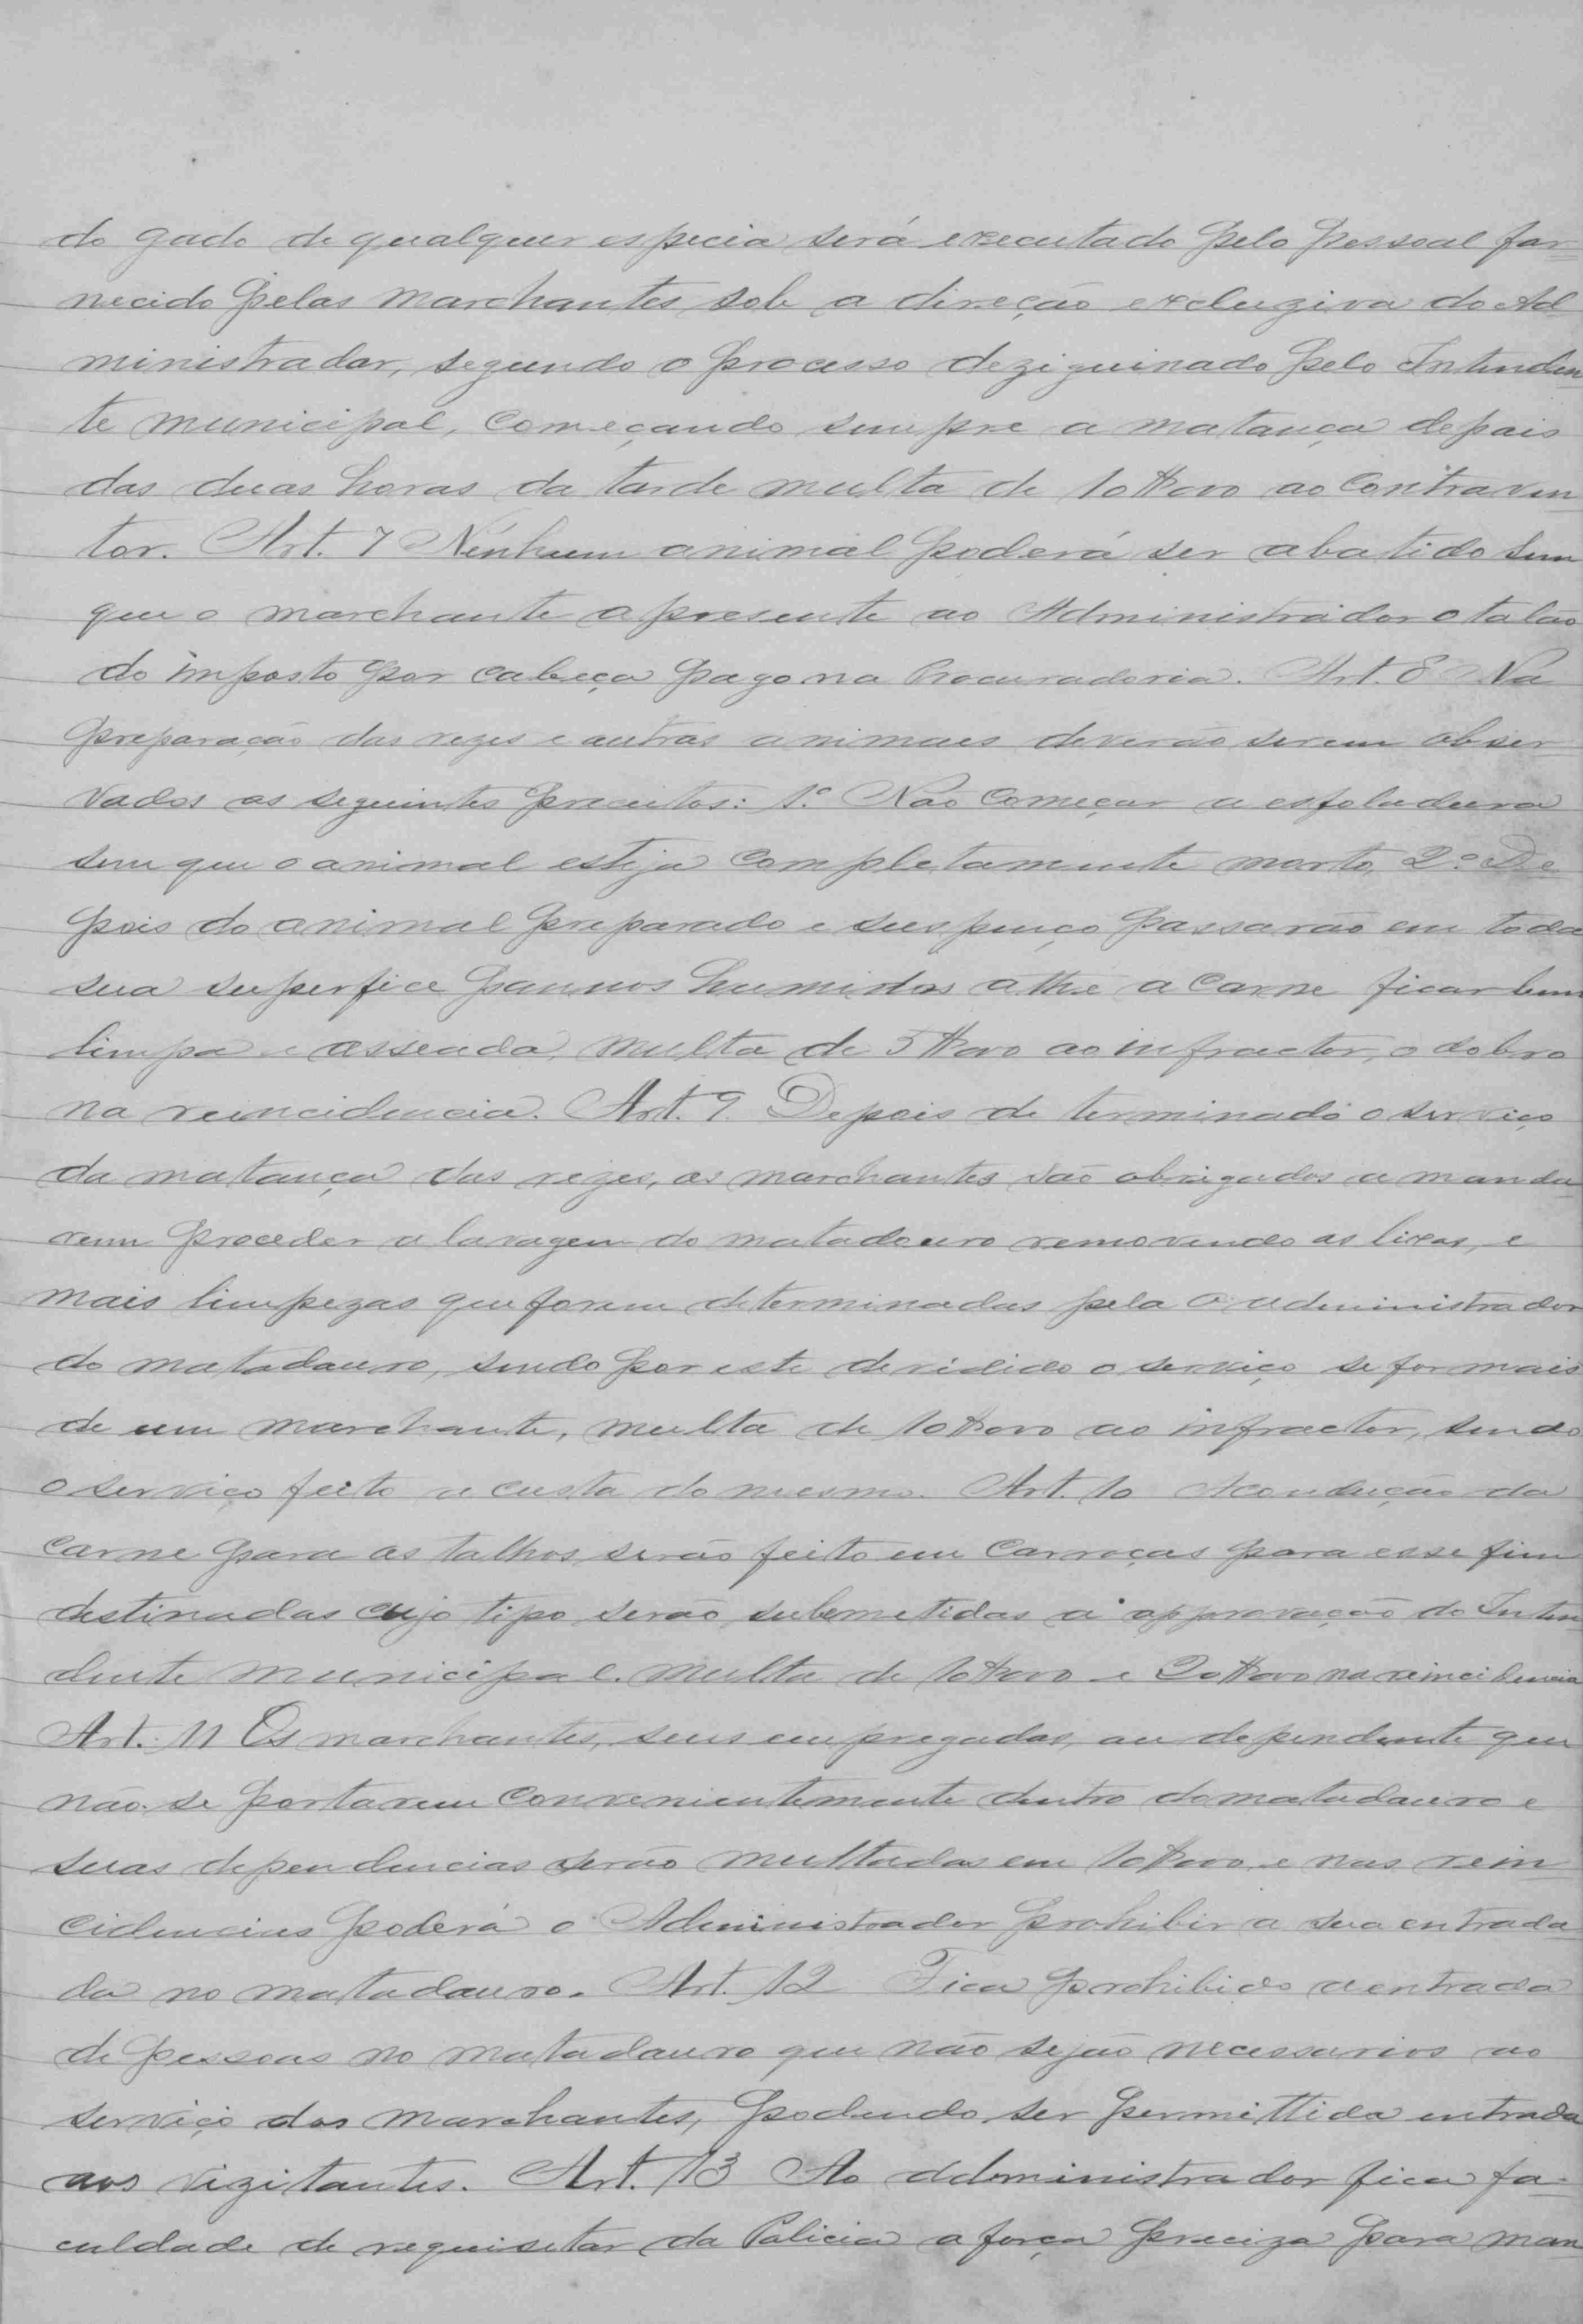 do gado de qualquer especia será executado pelo pessoal for=
necido pelos marchantes sob a direção excluziva do Ad
ministrador, segundo o processo dezignado pelo Intenden
te municipal, começando sempre a matança depois
das duas horas da tarde multa de 10$000 ao contraven
tor. Art. 7 Nenhum animal poderá ser abatido sem
que o marchante apresente ao Administrador o talão
do imposto por cabeça pago na Procuradoria. Art. 8 Na
preparação das rezes e outros animaes deverão serem obser
vados os seguintes preceitos: 1.º Não começar a esfoladura
sem que o animal esteja completamente morto, 2.º De
pois do animal preparado e suspenço passarão em toda
sua superfice pannos humidos athe a carne ficar bem
limpa e asseada, multa de 5$000 ao infractor, o dobro
na reincidencia. Art. 9 Depois de terminado o serviço
da matança das rezes, os marchantes são obrigados a manda
rem proceder a lavagem do matadouro removendo os lixos, e
mais limpezas que forem determinadas pela o administrador
do matadouro, sendo por este devidido o serviço se for mais
de um marchante, multa de 10$000 ao infractor, sendo
o serviço feito a custa do mesmo. Art. 10 A condução da
carne para os talhos, serão feito em carroças para esse fim
destinadas cujo tipo serão submetidas a approvação do Inten
dente municipal. multa de 10$000 e 20$000 na reincidencia
Art. 11 Os marchantes, seus empregados, ou dependente que
não se portarem convenientemente dentro do matadouro e
suas dependencias serão multados em 10$000, e nas rein
cidencias poderá o Administrador prohibir a sua entrada
da no matadouro. Art. 12 Fica prohibido a entrada
de pessoas no matadouro que não sejão necessarios ao
serviço dos marchantes, podendo ser permittida entrada
aos vizitantes. Art. 13 Ao Administrador fica fa=
culdade de requisitar da Policia a força preciza para man